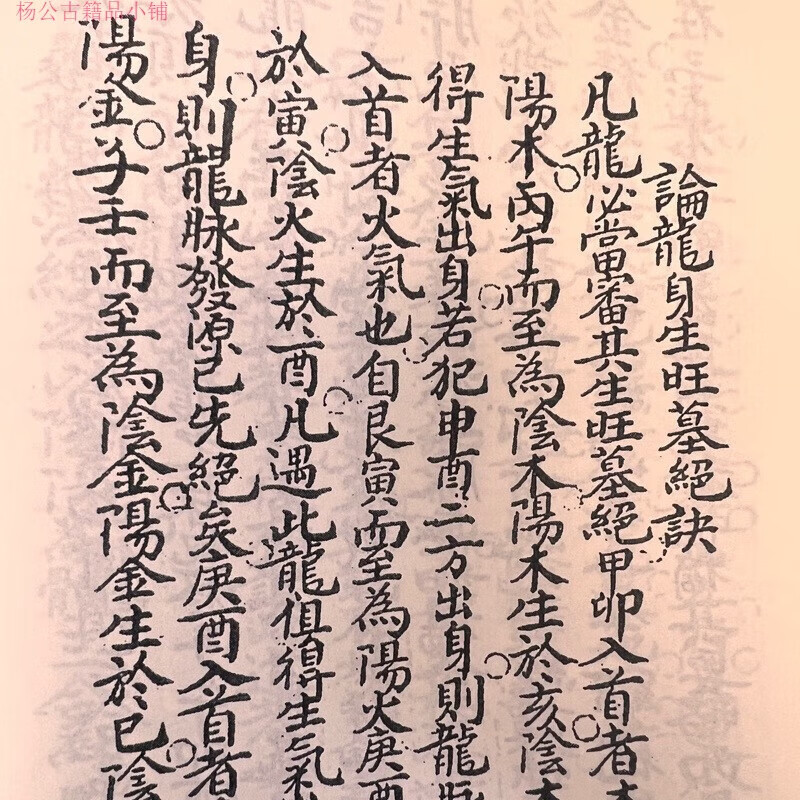 杨公古籍品小铺
論龍身生旺墓絕訣
凡龍必當審其生旺墓絕甲卯入首者
陽木丙午而至為陰木陽木生於亥陰
得生氣出身若犯申酉二方出身則龍
入首者火氣也自艮寅而至為陽火庚酉
於寅陰火生於酉凡遇此龍俱得生氣
身則龍脉發源已先絕矣庚酉入首者
陽金子壬而至為陰金陽金生於巳陰